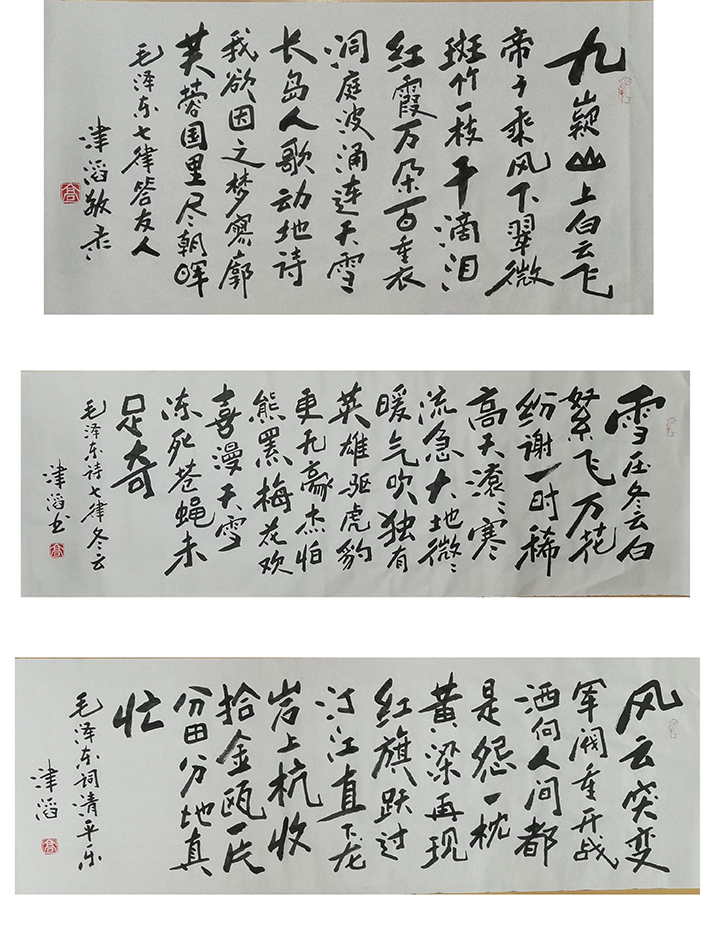 九嶷山上白云飞
帝子乘风下翠微
斑竹一枝千滴泪
红霞万朵百重衣
洞庭波涌连天雪
长岛人歌动地诗
我欲因之梦寥廓
芙蓉国里尽朝晖
毛泽东七律答友人
津滔敬录
雪压冬云白
絮飞万花
纷谢一时稀
高天滚〻寒
流急大地微〻
暖气吹独有
英雄驱虎豹
更无豪杰怕
熊罴梅花欢
喜漫天雪
冻死苍蝇未
足奇
毛泽东诗七律冬云
津滔书
风云突变
军阀重开战
洒向人间都
是怨一枕
黄梁再现
红旗跃过
汀江直下龙
岩上杭收
拾金瓯一片
分田分地真
忙
毛泽东词清平乐
津滔